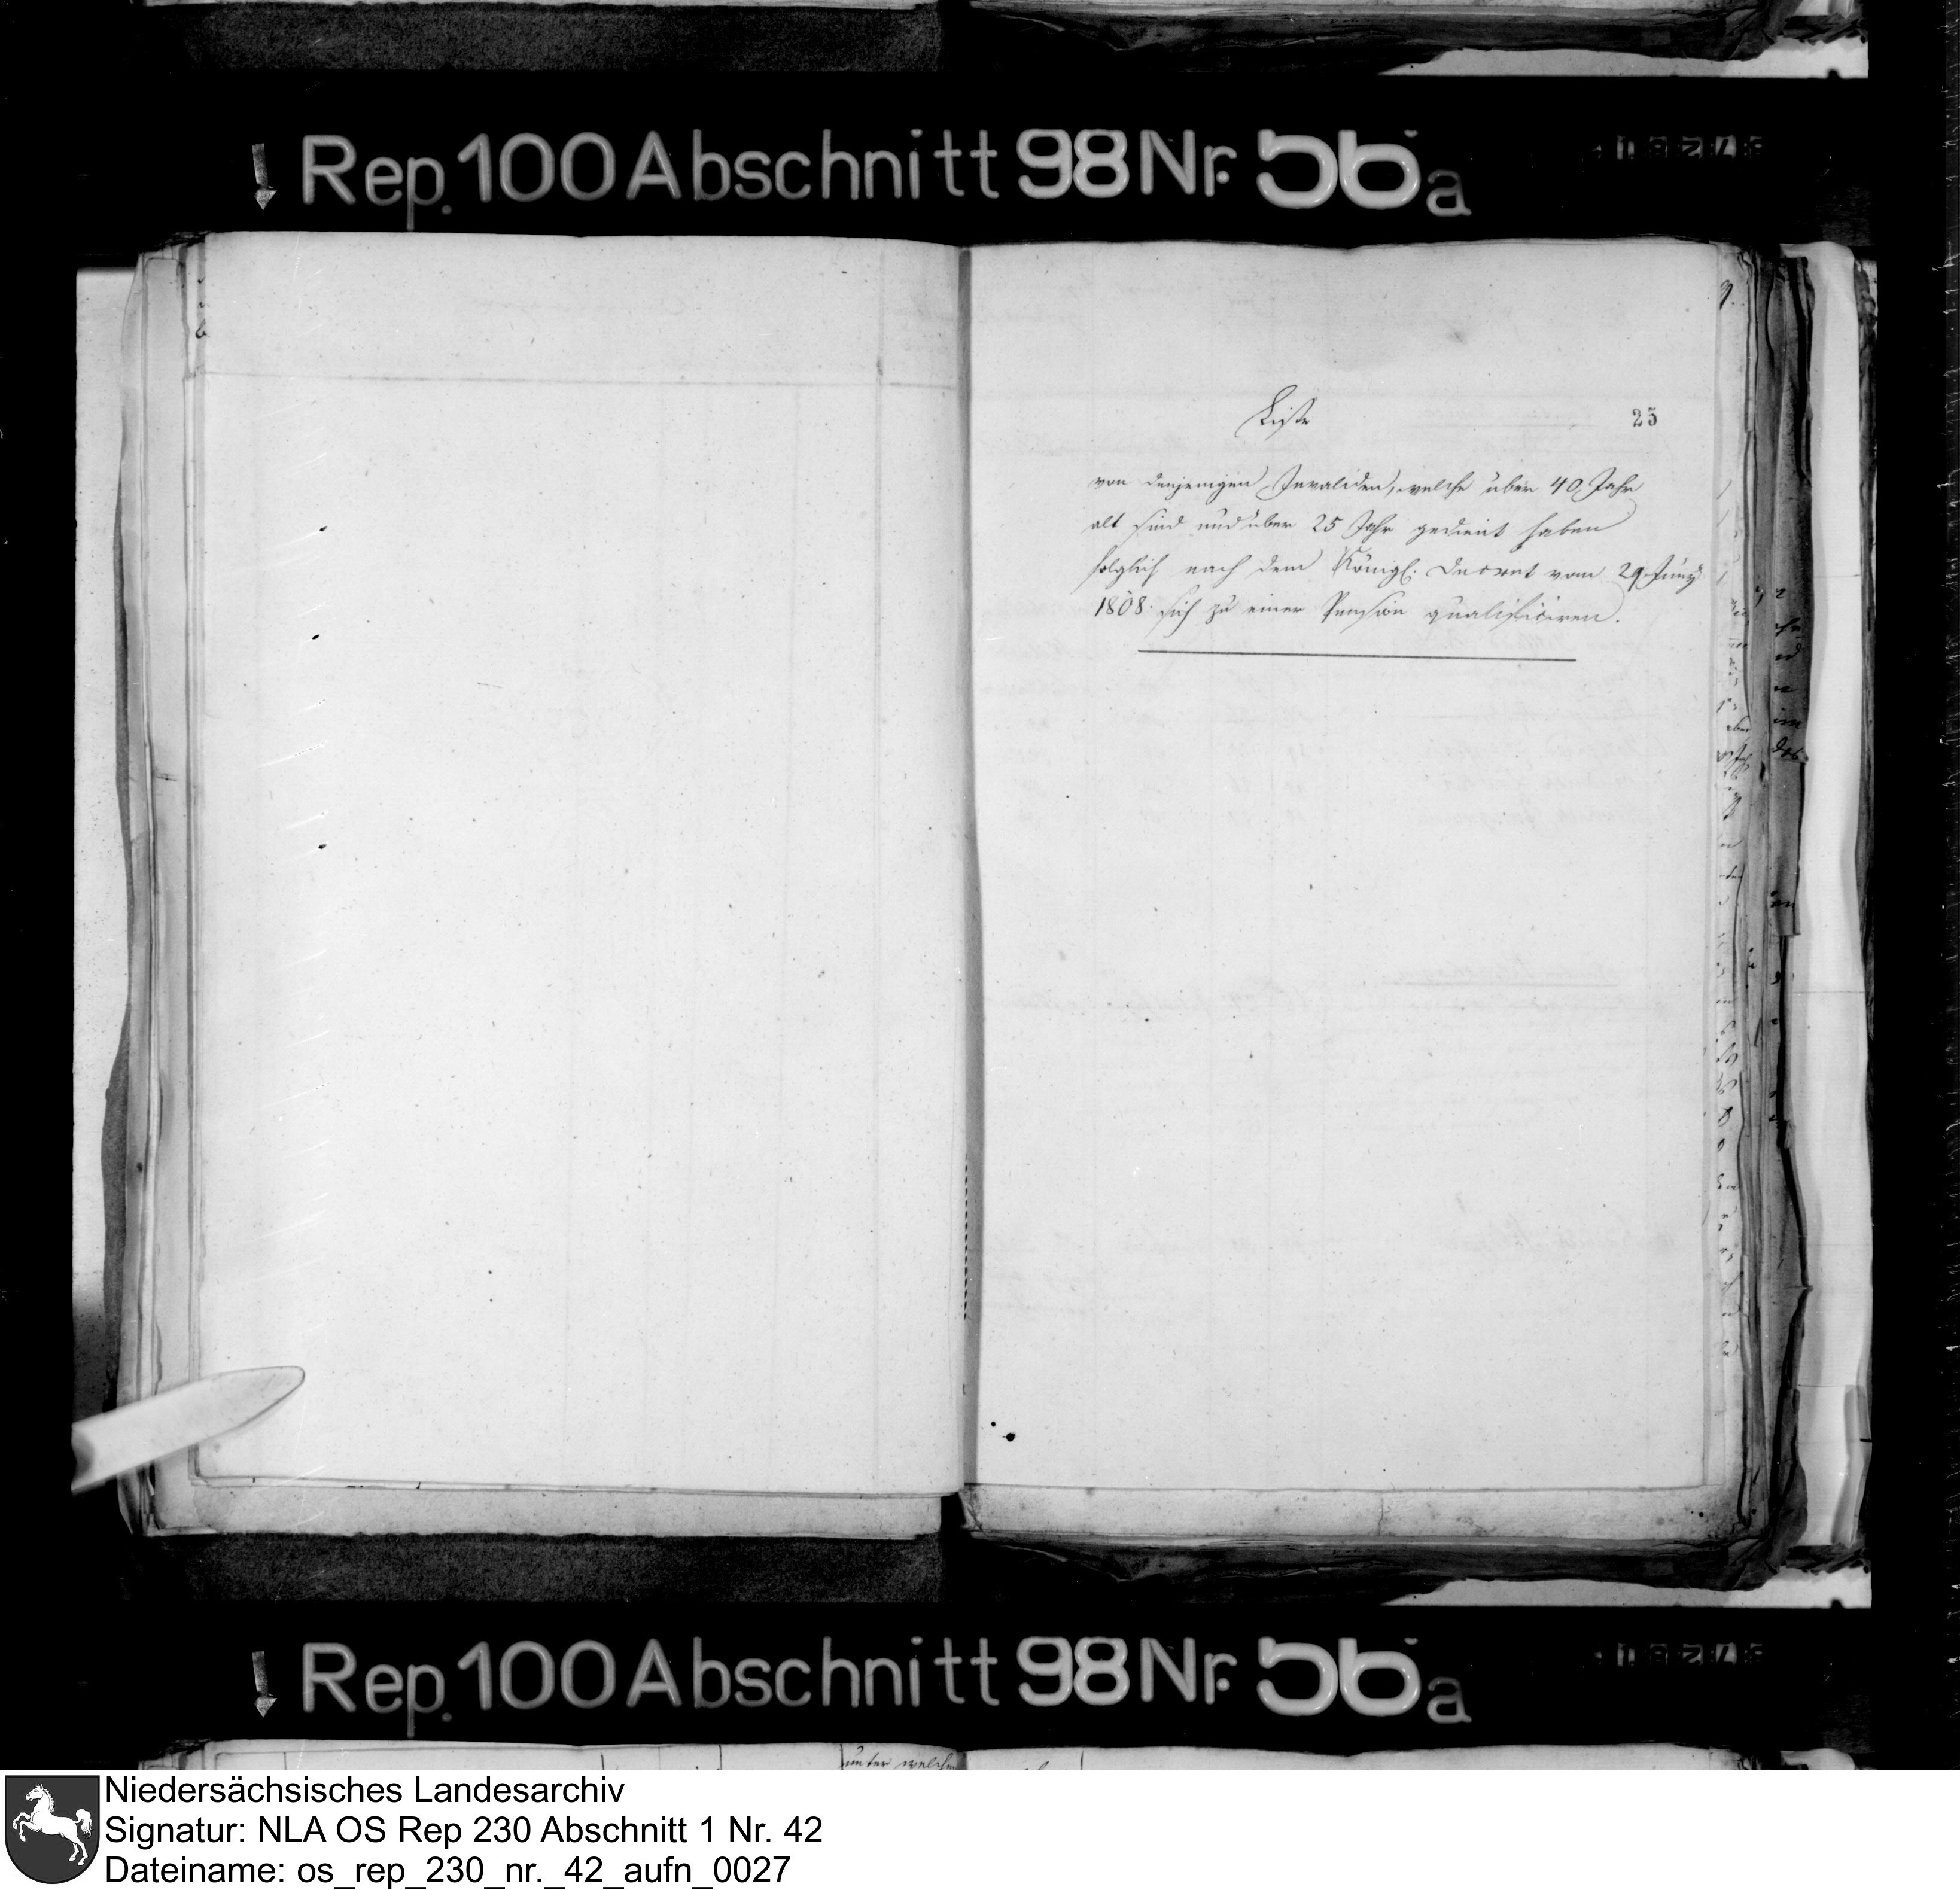 Rep. 100 Abschnitt 98 Nr. 56a
25
Liste
von denjenigen Invaliden, welche über 40 Jahr
alt sind und über 25 Jahr gedient haben
folglich nach dem Königl. Decret vom 29 Juny
1808. sich zu einer Pension qualificiren.
Rep. 100 Abschnitt 98 Nr. 56a
unter welche
Niedersächsisches Landesarchiv
Signatur: NLA OS Rep 230 Abschnitt 1 Nr. 42
Dateiname: os_rep_230_nr._42_aufn_0027